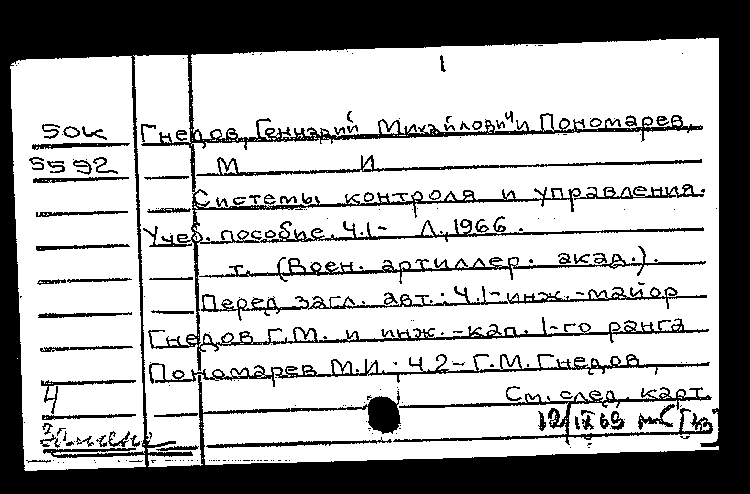 1
50к Гнедов, Геннадий Михайлович и Пономарев,
5592 М И
Системы контроля и управления.
Учеб. пособие. Ч.1- Л., 1966.
т. (Воен. артиллер. акад.).
Перед загл. авт.: Ч.1-инж.-майор
Гнедов Г.М. и инж.-кап. 1-го ранга
Пономарев М.И. Ч.2-Г.М.Гнедов,
4 См. след. карт.
Замена 12/IX 69